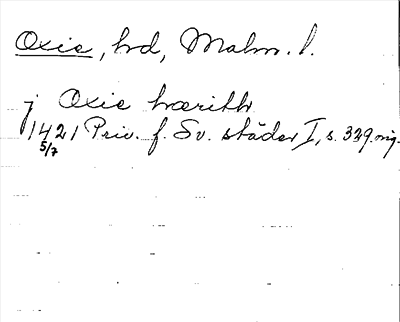 Oxie, hrd, Malm. l.
j Oxie hærith
1421 Priv. f. Sv. städer I, s. 339. orig.
5/7